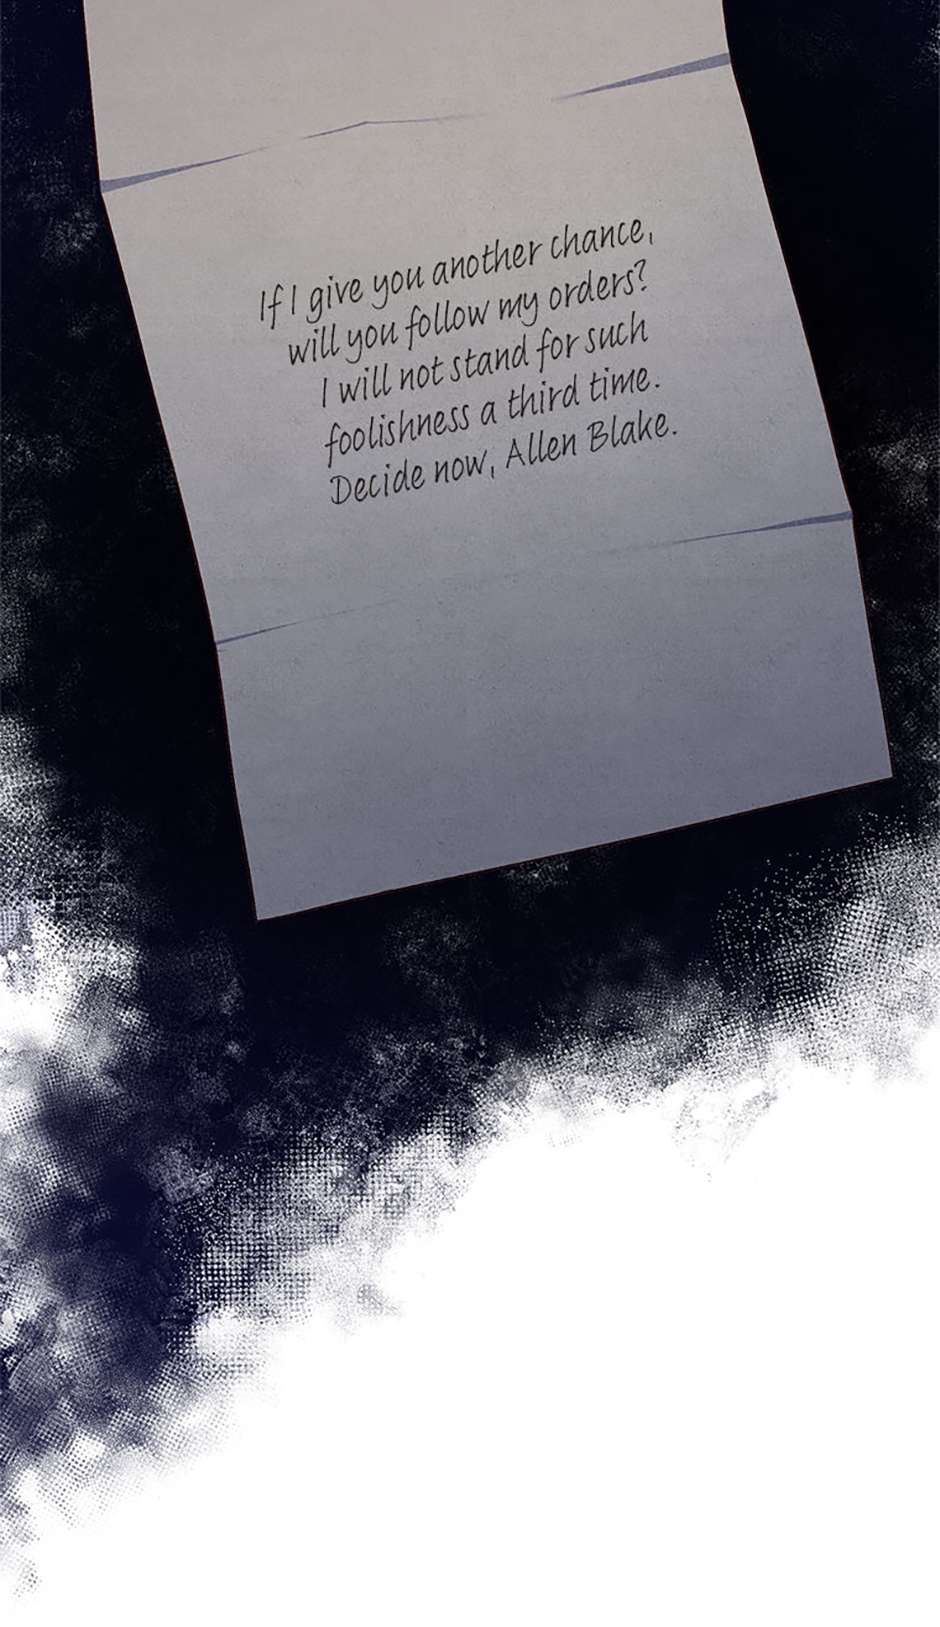 If I give you another chance,
will you follow my orders?
I will not stand for such
foolishness a third time.
Decide now, Allen Blake.